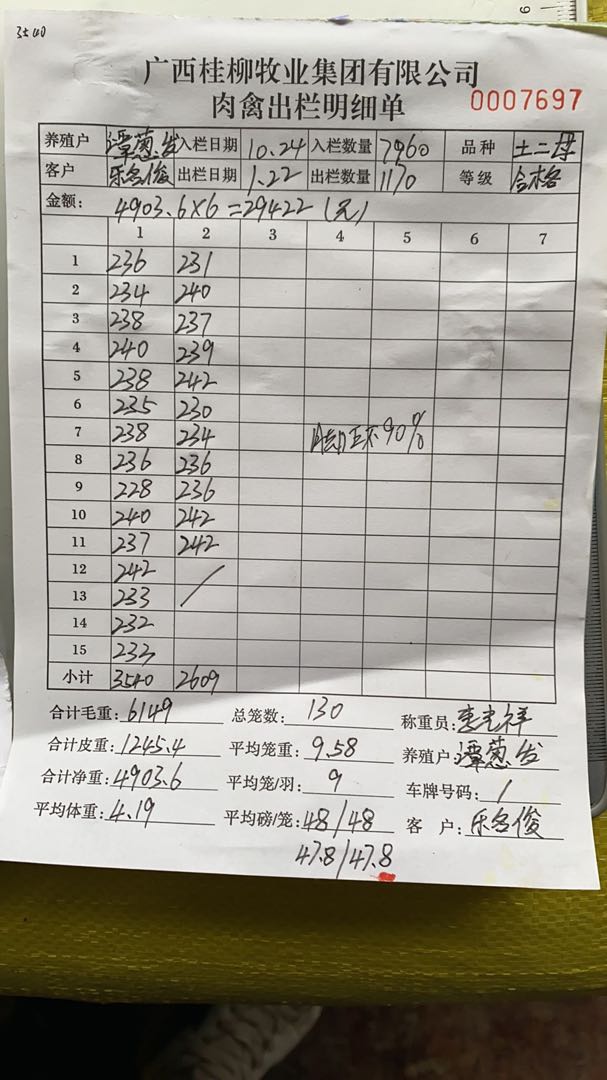 3540
广西桂柳牧业集团有限公司
肉禽出栏明细单 0007697
养殖户 谭葱发 入栏日期 10.24 入栏数量 7960 品种 土二母
客户 乐名俊 出栏日期 1.22 出栏数量 1170 等级 合格
金额: 4903.6×6=29422(元)
1 2 3 4 5 6 7
1 236 231
2 234 240
3 238 237
4 240 239
5 238 242
6 235 230
7 238 234 90%
8 236 236
9 228 236
10 240 242
11 237 242
12 242
13 233 /
14 232
15 233
小计 3540 2609
合计毛重: 6149 总笼数: 130 称重员:
合计皮重: 1245.4 平均笼重: 9.58 养殖户: 谭葱发
合计净重: 4903.6 平均笼/羽: 9 车牌号码: /
平均体重: 4.19 平均磅/笼: 48/48 客 户: 乐名俊
47.8/47.8